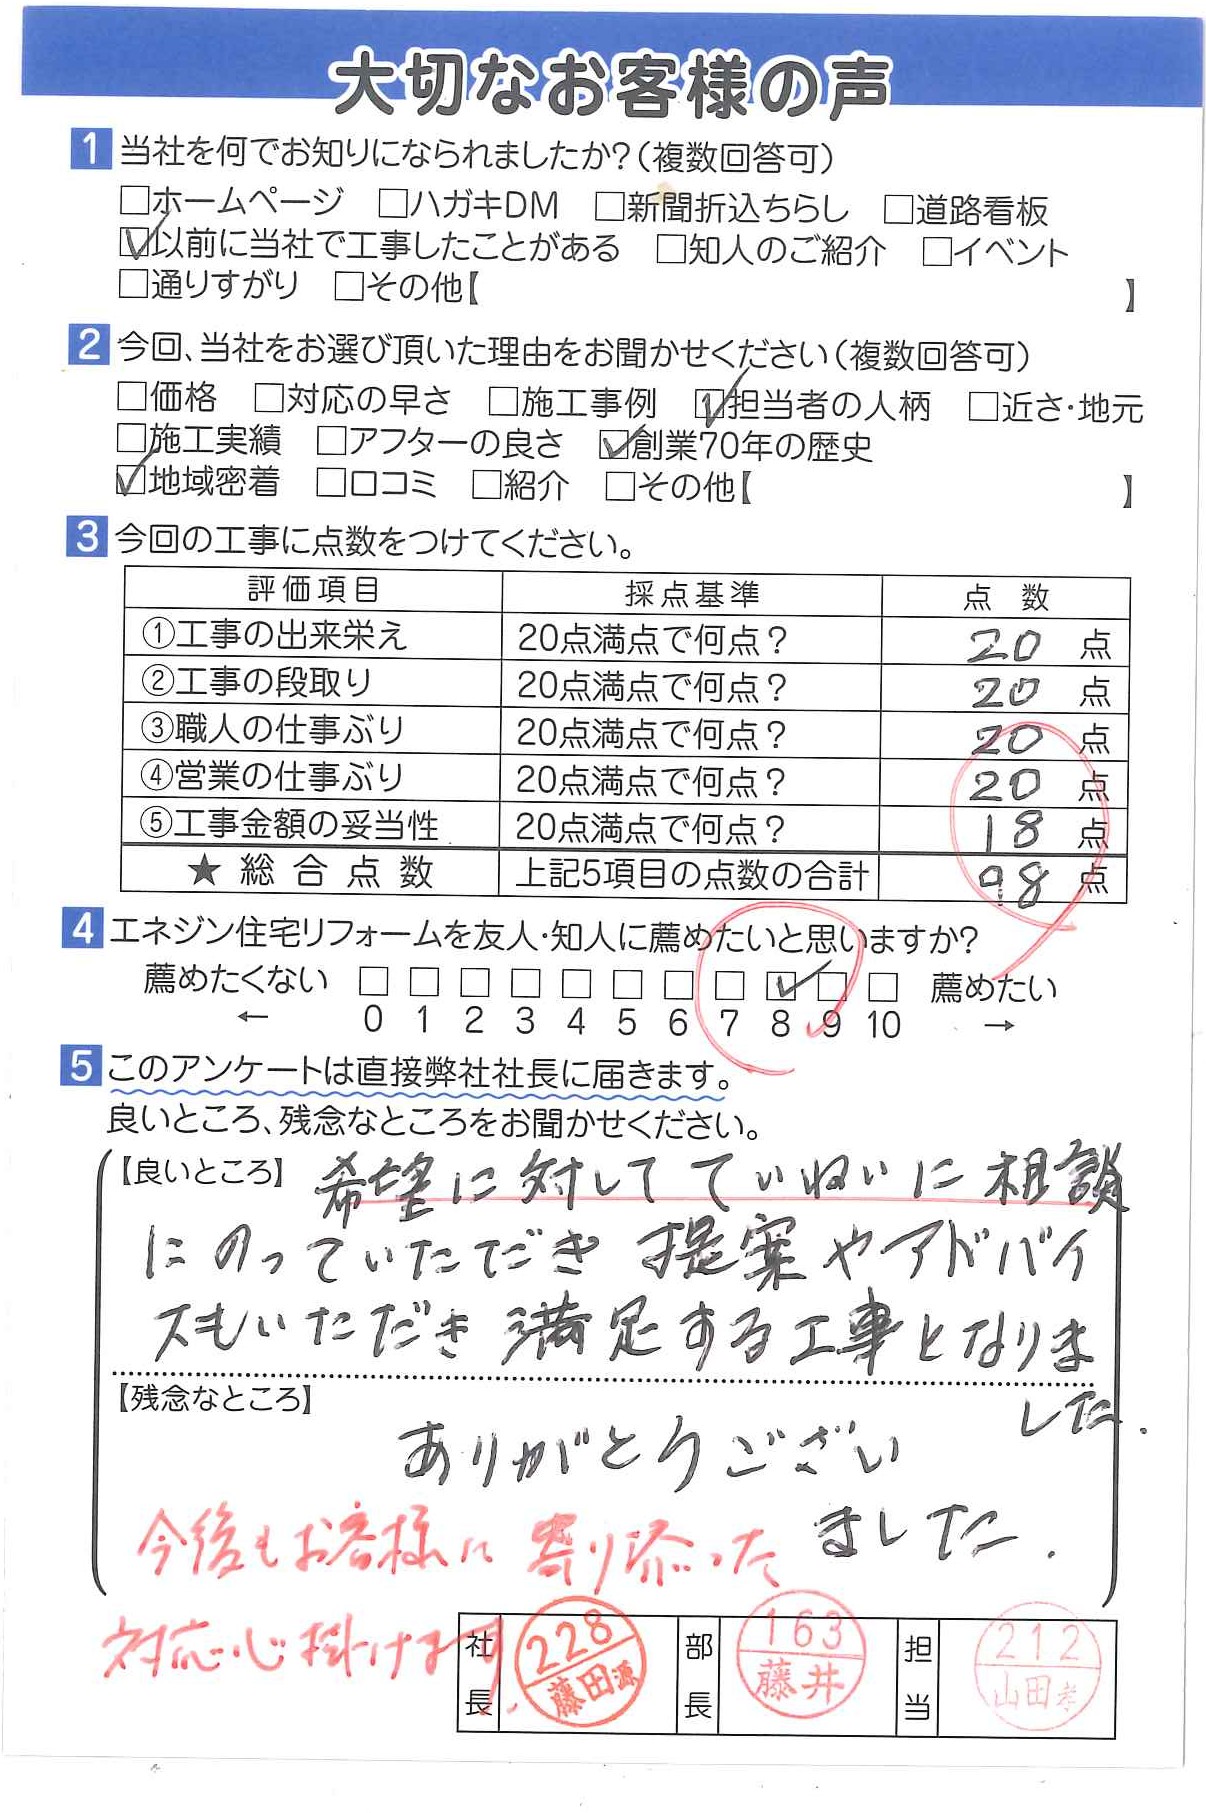 大切なお客様の声
1 当社を何でお知りになられましたか?(複数回答可)
□ホームページ □ハガキDM □新聞折込ちらし □道路看板
☑以前に当社で工事したことがある □知人のご紹介 □イベント
□通りすがり □その他【 】
2 今回、当社をお選び頂いた理由をお聞かせください(複数回答可)
□価格 □対応の早さ □施工事例 ☑担当者の人柄 □近さ・地元
□施工実績 □アフターの良さ ☑創業70年の歴史
☑地域密着 □口コミ □紹介 □その他【 】
3 今回の工事に点数をつけてください。
評価項目 採点基準 点数
①工事の出来栄え 20点満点で何点? 20 点
②工事の段取り 20点満点で何点? 20 点
③職人の仕事ぶり 20点満点で何点? 20 点
④営業の仕事ぶり 20点満点で何点? 20 点
⑤工事金額の妥当性 20点満点で何点? 18 点
★総合点数 上記5項目の点数の合計 98 点
4 エネジン住宅リフォームを友人・知人に薦めたいと思いますか?
薦めたくない □ □ □ □ □ □ □ □ ☑ □ □ 薦めたい
← 0 1 2 3 4 5 6 7 8 9 10 →
5 このアンケートは直接弊社社長に届きます。
良いところ、残念なところをお聞かせください。
【良いところ】 希望に対してていねいに相談
にのっていただき 提案やアドバイ
スもいただき 満足する工事となりま
した.
【残念なところ】
ありがとうござい
ました.
今後もお客様に寄り添った
対応心掛けます.
社長 228 藤田源 部長 163 藤井 担当 212 山田孝